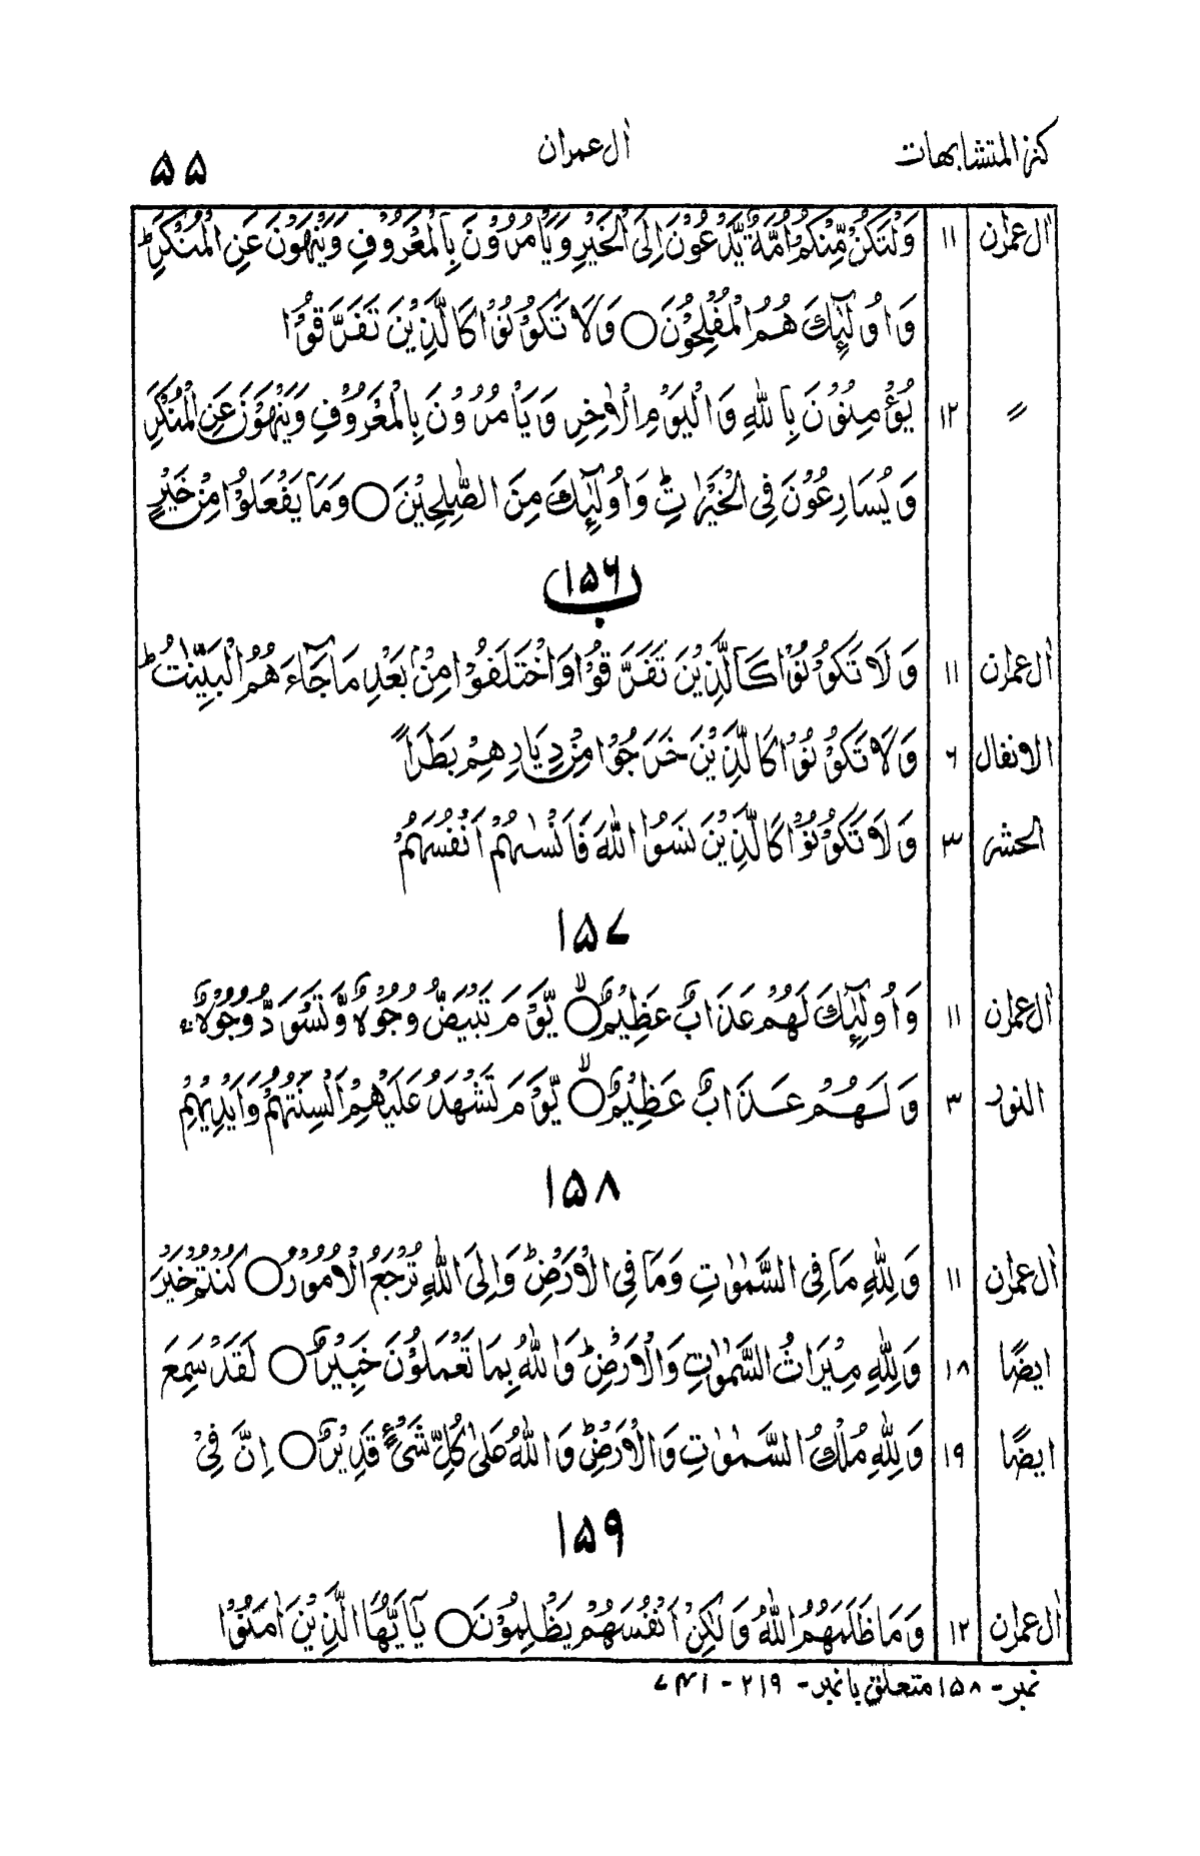 کنز المتشابهات اٰل عمران ۵۵
اٰل عمرٰن ۱۱ وَلْتَكُنْ مِّنْكُمْ اُمَّةٌ يَّدْعُوْنَ اِلَى الْخَيْرِ وَيَاْمُرُوْنَ بِالْمَعْرُوْفِ وَيَنْهَوْنَ عَنِ الْمُنْكَرِ ؕ
وَاُولٰٓئِكَ هُمُ الْمُفْلِحُوْنَ ○ وَلَا تَكُوْنُوْا كَالَّذِيْنَ تَفَرَّقُوْا
〃 ۱۲ يُؤْمِنُوْنَ بِاللّٰهِ وَالْيَوْمِ الْاٰخِرِ وَيَاْمُرُوْنَ بِالْمَعْرُوْفِ وَيَنْهَوْنَ عَنِ الْمُنْكَرِ
وَيُسَارِعُوْنَ فِى الْخَيْرٰتِ ؕ وَاُولٰٓئِكَ مِنَ الصّٰلِحِيْنَ ○ وَمَا يَفْعَلُوْا مِنْ خَيْرٍ
ب ۱۵۶
اٰل عمرٰن ۱۱ وَلَا تَكُوْنُوْا كَالَّذِيْنَ تَفَرَّقُوْا وَاخْتَلَفُوْا مِنْۢ بَعْدِ مَا جَآءَهُمُ الْبَيِّنٰتُ ؕ
الانفال ۶ وَلَا تَكُوْنُوْا كَالَّذِيْنَ خَرَجُوْا مِنْ دِيَارِهِمْ بَطَرًا
الحشر ۳ وَلَا تَكُوْنُوْا كَالَّذِيْنَ نَسُوا اللّٰهَ فَاَنْسٰىهُمْ اَنْفُسَهُمْ
۱۵۷
اٰل عمرٰن ۱۱ وَاُولٰٓئِكَ لَهُمْ عَذَابٌ عَظِيْمٌ ○ۙ يَّوْمَ تَبْيَضُّ وُجُوْهٌ وَّتَسْوَدُّ وُجُوْهٌ ۚ
النور ۳ وَلَهُمْ عَذَابٌ عَظِيْمٌ ○ۙ يَّوْمَ تَشْهَدُ عَلَيْهِمْ اَلْسِنَتُهُمْ وَاَيْدِيْهِمْ
۱۵۸
اٰل عمرٰن ۱۱ وَلِلّٰهِ مَا فِى السَّمٰوٰتِ وَمَا فِى الْاَرْضِ ؕ وَاِلَى اللّٰهِ تُرْجَعُ الْاُمُوْرُ ○ كُنْتُمْ خَيْرَ
ايضًا ۱۸ وَلِلّٰهِ مِيْرَاثُ السَّمٰوٰتِ وَالْاَرْضِ ؕ وَاللّٰهُ بِمَا تَعْمَلُوْنَ خَبِيْرٌ ○ لَقَدْ سَمِعَ
ايضًا ۱۹ وَلِلّٰهِ مُلْكُ السَّمٰوٰتِ وَالْاَرْضِ ؕ وَاللّٰهُ عَلٰى كُلِّ شَىْءٍ قَدِيْرٌ ○ اِنَّ فِىْ
۱۵۹
اٰل عمرٰن ۱۲ وَمَا ظَلَمَهُمُ اللّٰهُ وَلٰكِنْ اَنْفُسَهُمْ يَظْلِمُوْنَ ○ يٰٓاَيُّهَا الَّذِيْنَ اٰمَنُوْا
نمبر - ۱۵۸ متعلق با نمبر - ۲۱۹ -